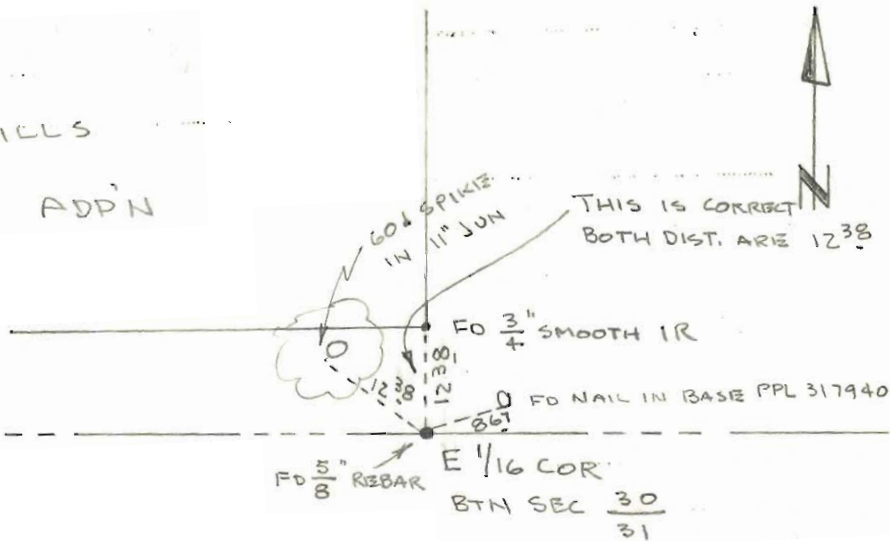 ILLS
ADD'N
60d SPIKE
IN 11" JUN
THIS IS CORRECT
BOTH DIST. ARE 12 38
N
FD 3/4" SMOOTH IR
12 38
12 38
FD NAIL IN BASE PPL 317940
8 67
FD 5/8" REBAR
E 1/16 COR
BTN SEC 30/31